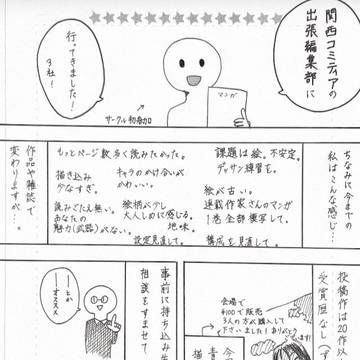 関西コミティアの
出張編集部に
行ってきました!
3社!
マンガ
サークル初参加
ちなみに今までの
私はこんな感じ…
課題は絵。不安定。
デッサン練習を。
絵が古い。
連載作家さんのマンガ
1巻全部模写して。
構成を見直して。
もっとページ数多く読みたかった。
キャラのかけ合いが
かわいい。
描き込み
少なすぎ。
絵柄がテレ
大人しめに感じる。
地味。
読みごたえ無い。
あなたの
魅力(武器)がない。
設定見直して。
作品や雑誌で
変わりますが…。
投稿作は20作以
受賞歴なしへ
会場で
¥100で販売
3人の方が購入して
下さいました!ありがとう
事前に持ち込み
相談をすませて
オススメ